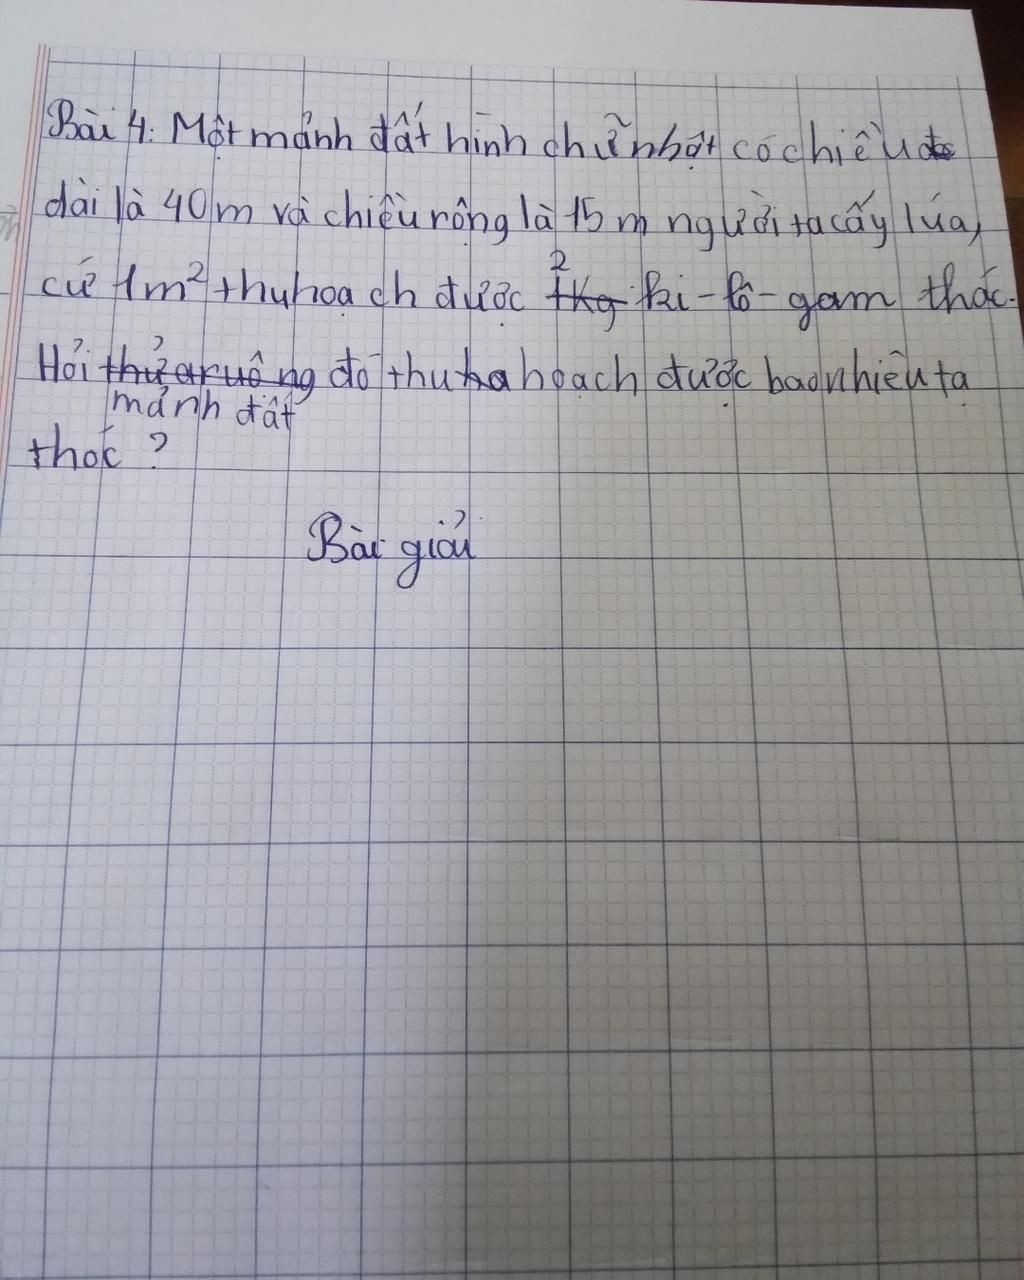 Bài 4: Một mảnh đất hình chữ nhật có chiều
dài là 40m và chiều rộng là 15 m người ta cấy lúa,
cứ 1m² thu hoạch được 2 ki-lô-gam thóc.
Hỏi đó thu hoạch được bao nhiêu tạ
mảnh đất
thóc ?
Bài giải